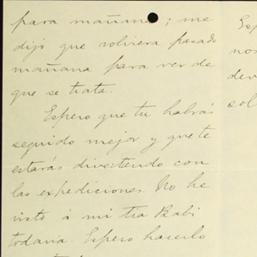 para mañana; me
dijo que volviera pasado
mañana para ver de
que se trata.
Espero que tu habrás
seguido mejor y que te
estarás divirtiendo con
las expediciones. No he
visto á mi tia Babi
todavia. Espero hacerlo
Esp
nos
dev
sol